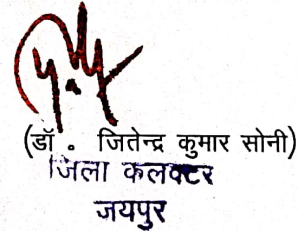 (डॉ ० जितेन्द्र कुमार सोनी)
जिला कलक्टर
जयपुर